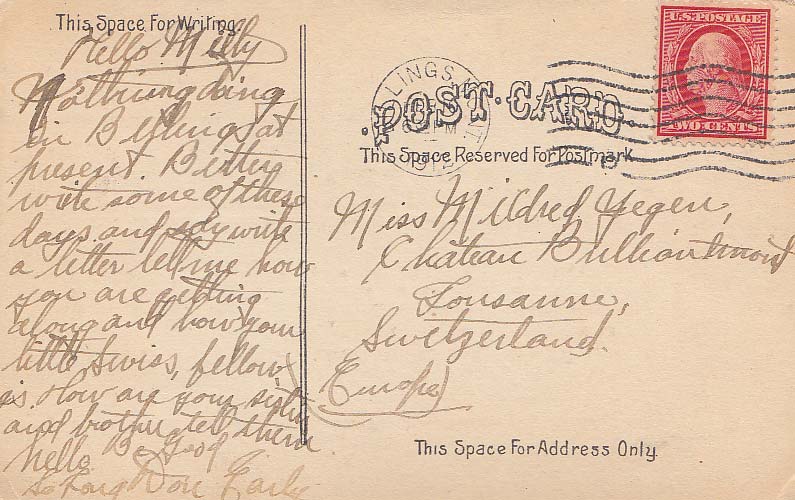 This Space For Writing
Hello Milly
Nothing doing
in Billings at
present. Better
write some of these
days and
a letter let me know
you are getting
along and how your
little Swiss, fellow,
is How are your sister
and brother tell them
hello. Be Good
So Long Don Early
U.S. POSTAGE
TWO CENTS
LINGS
PM
1912
POST CARD
This Space Reserved For Postmark
Miss Mildred Yegen,
Château Brilliantmont
Lousanne,
Switzerland.
(Europe)
This Space For Address Only.